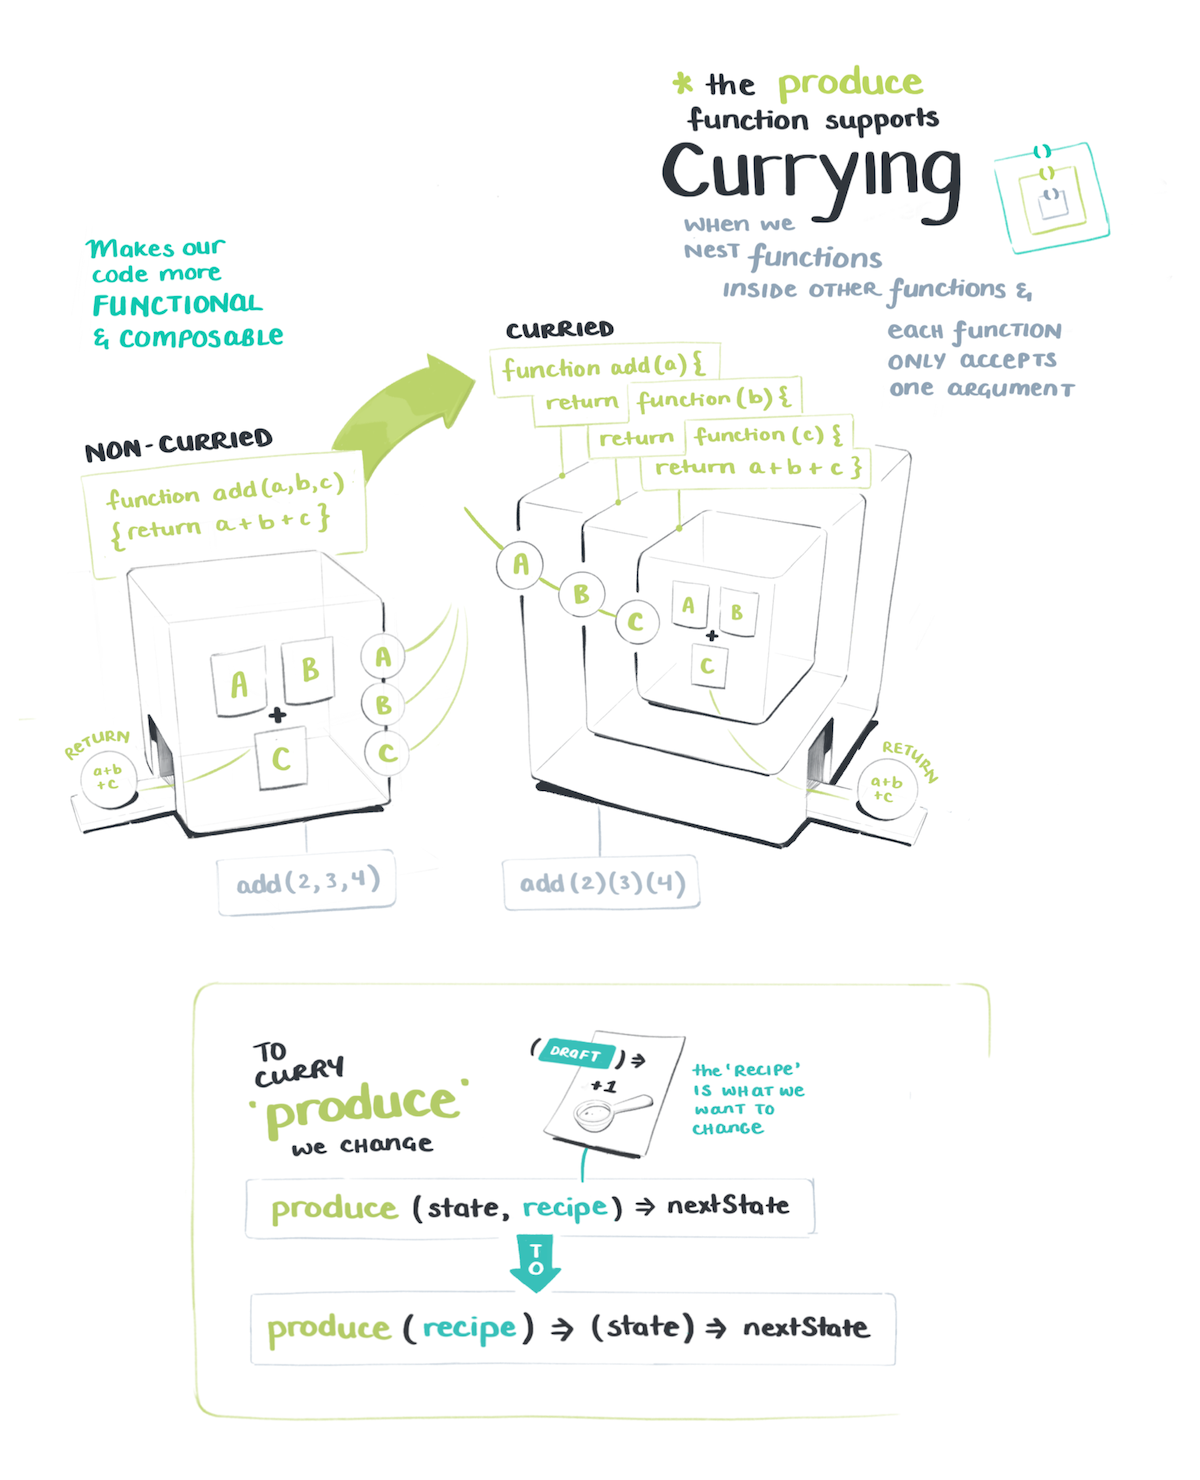 * the produce
function supports
Currying
( )
( )
( )
WHen we
NEST functions
INSIDE OTHER functions &
each function
ONLY accepts
one argument
Makes our
code more
FUNCTIONAL
& COMPOSABLE
CURRIED
function add(a){
return function(b){
return function(c){
return a+b+c}
NON-CURRIED
function add(a,b,c)
{return a+b+c}
A
B
+
C
A
B
C
RETURN
a+b
+c
add(2,3,4)
A
B
C
A
B
+
C
RETURN
a+b
+c
add(2)(3)(4)
TO
CURRY
'produce'
we CHANGE
(DRAFT)⇒
+1
the 'RECIPE'
IS WHAT we
WANT TO
CHANGE
produce (state, recipe) ⇒ nextState
TO
produce (recipe) ⇒ (state) ⇒ nextState